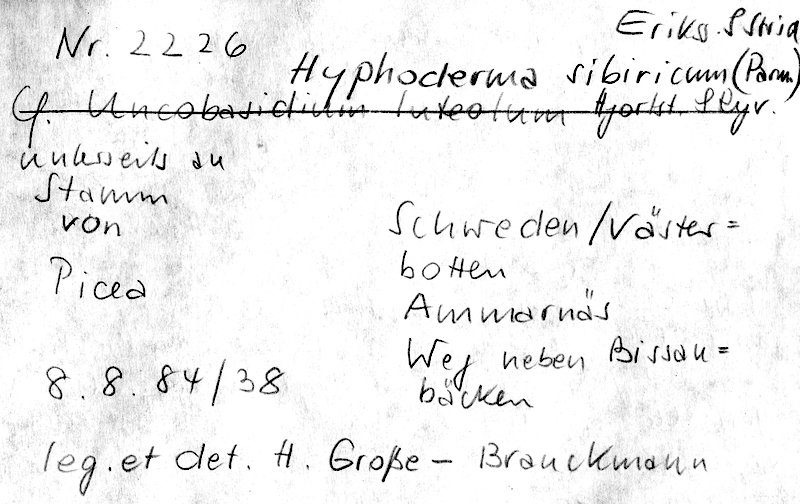 Nr. 2226
Hyphoderma sibiricum (Parm.) Erikss. & Strid
Cf. Uncobasidium luteolum Hjortst. & Ryv.
unterseits an
Stamm
von
Picea
Schweden/Väster=
botten
Ammarnäs
Weg neben Bissan=
bäcken
8. 8. 84/38
leg. et det. H. Große - Brauckmann